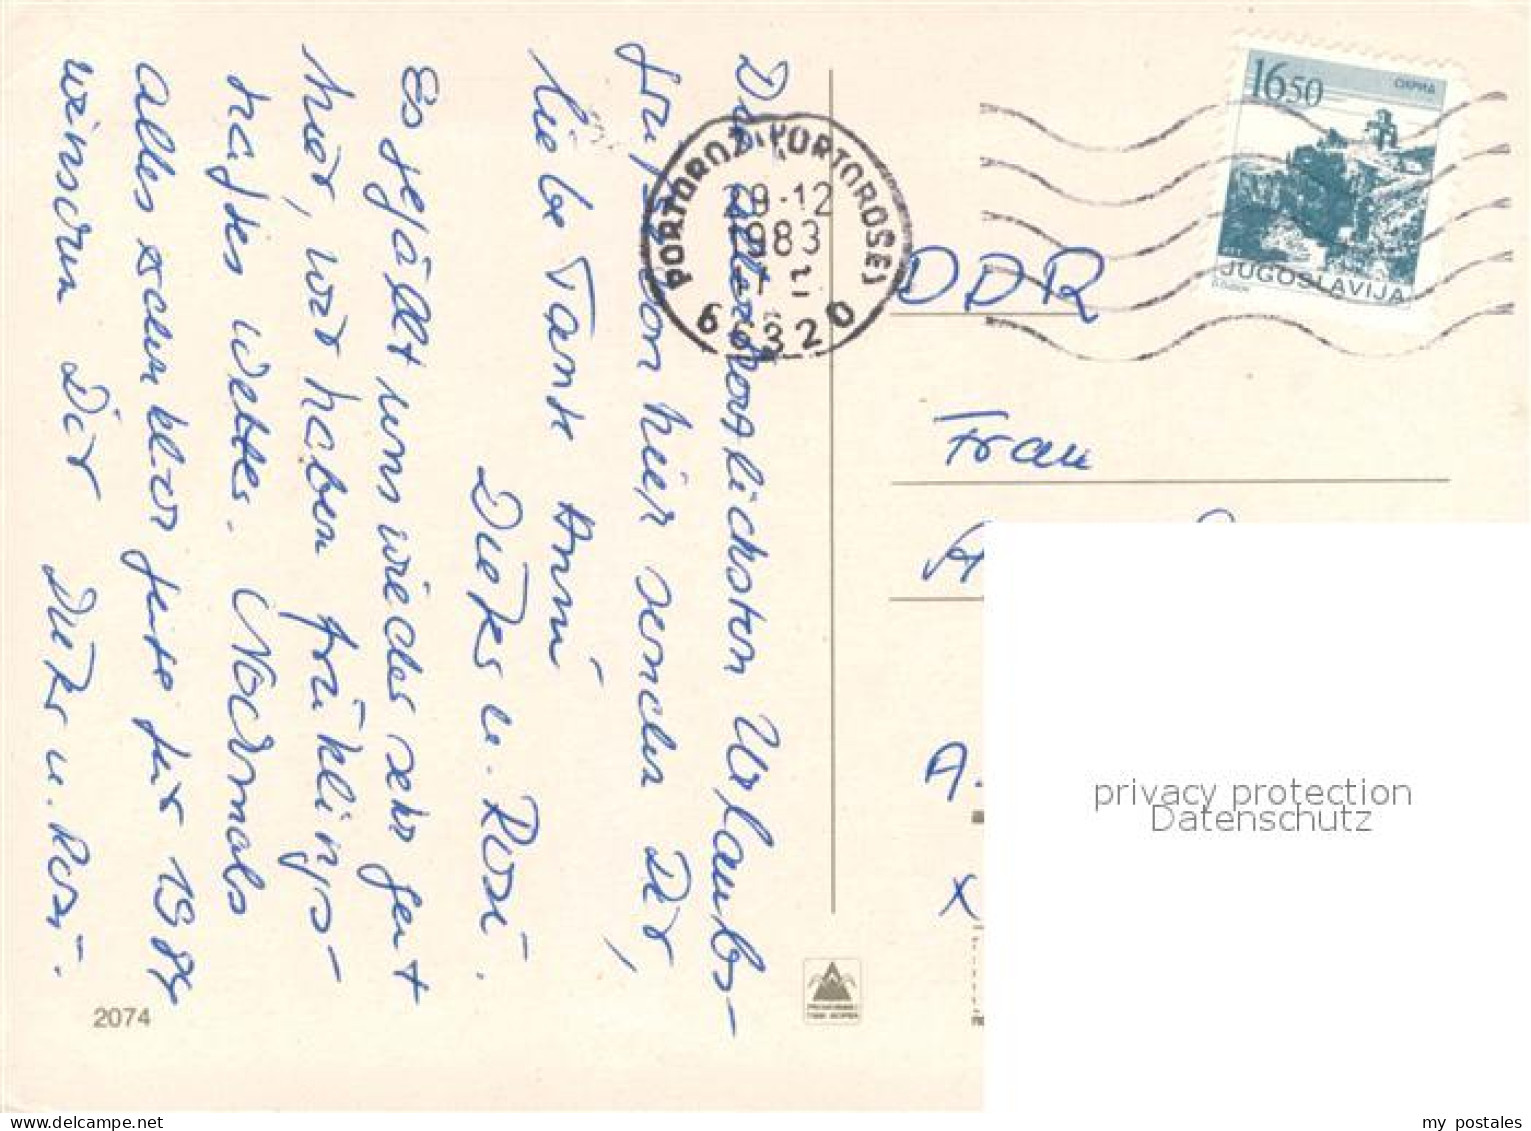 Die allerherzlichsten Urlaubs-
grüße von hier senden Dir,
liebe Tante Anni
Dieter u. Rosi.
Es gefällt uns wieder sehr gut
hier, wir haben frühlings-
haftes Wetter. Nochmals
alles schen kl-or gute für 1984
wünschen Dir Dieter u. Rosi.
2074
PORTOROŽ (PORTOROSE)
29-12
983
66320
16 50
ОХРИД
JUGOSLAVIJA
DDR
Frau
A.
X
privacy protection
Datenschutz
my postales